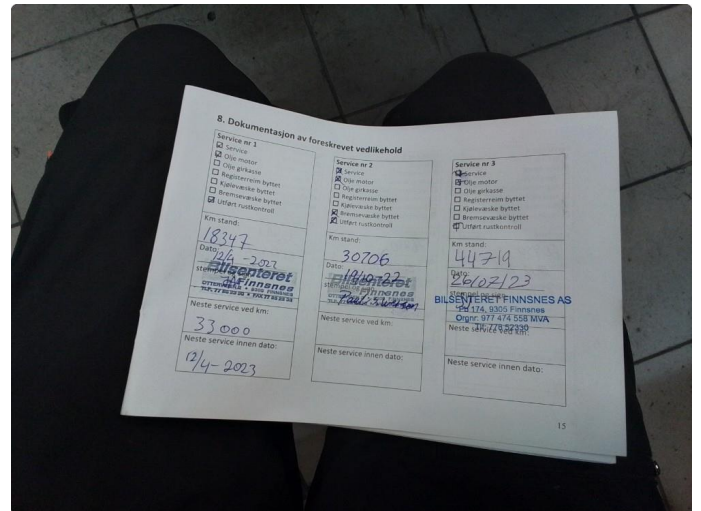 8. Dokumentasjon av foreskrevet vedlikehold
Service nr 1
Service
Olje motor
Olje girkasse
Registerreim byttet
Kjølevæske byttet
Bremsevæske byttet
Utført rustkontroll
Km stand:
18347
Dato:
12/4-2022
Bilsenteret
Finnsnes
Neste service ved km:
33000
Neste service innen dato:
12/4-2023
Service nr 2
Service
Olje motor
Olje girkasse
Registerreim byttet
Kjølevæske byttet
Bremsevæske byttet
Utført rustkontroll
Km stand:
30706
Dato:
19/10-22
Bilsenteret
Finnsnes
Neste service ved km:
Neste service innen dato:
Service nr 3
Service
Olje motor
Olje girkasse
Registerreim byttet
Kjølevæske byttet
Bremsevæske byttet
Utført rustkontroll
Km stand:
44719
Dato:
26/07/23
BILSENTERET FINNSNES AS
Pb 174, 9305 Finnsnes
Orgnr. 977 474 558 MVA
Neste service ved km:
Neste service innen dato:
15